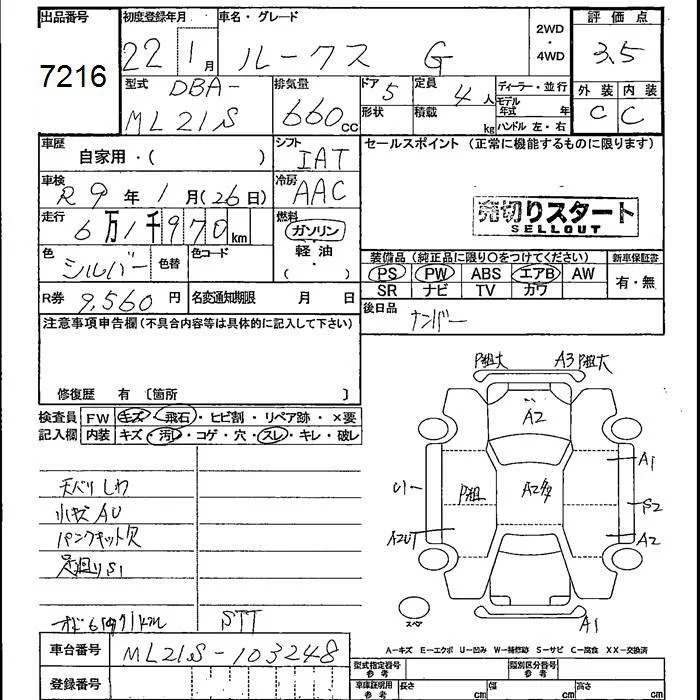 出品番号 初度登録年月 車名・グレード 2WD・4WD 評価点
7216 22 1月 ルークス G 3.5
型式 DBA-ML21S 排気量 660cc ドア 5 形状 定員 4人 積載 kg ディーラー・並行 モデル年式 年 ハンドル 左・右 外装 内装
C C
車歴 自家用・( ) シフト IAT セールスポイント (正常に機能するものに限ります)
車検 R9年 1月(26日) 冷房 AAC
売切りスタート
SELLOUT
走行 6万1千970km 燃料 ガソリン 軽油 ( )
色 シルバー 色替 色コード
装備品 (純正品に限り○をつけてください) 新車保証書
PS PW ABS エアB AW 有・無
SR ナビ TV カワ
R券 9,560円 名変通知期限 月 日
後日品 ナンバー
注意事項申告欄 (不具合内容等は具体的に記入して下さい)
修復歴 有 〔箇所 〕
検査員 FW キズ・飛石・ヒビ割・リペア跡・×要
記入欄 内装 キズ・汚レ・コゲ・穴・スレ・キレ・破レ
天バリしわ
小キズAU
パンクキット欠
足廻りS1
STT
P粗大 A3 P粗大
A2
A1
U1 P粗 S2
A2
A1
スペア
A-キズ E-エクボ U-凹み W-補修跡 S-サビ C-腐食 XX-交換済
車台番号 ML21S-103248
型式指定番号 参考 類別区分番号 参考
登録番号
車庫証明用 参考 長さ cm 幅 cm 高さ cm